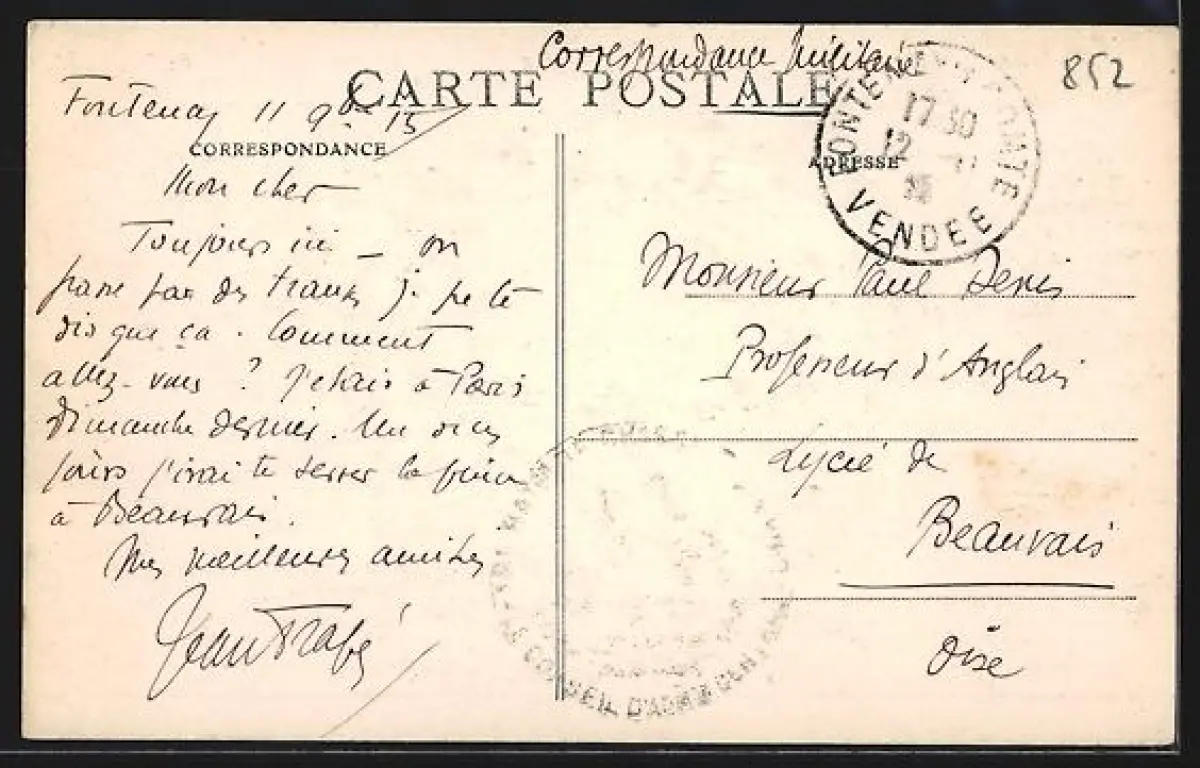 Correspondance Militaire
852
CARTE POSTALE
Fontenay 11 9bre 15
CORRESPONDANCE
ADRESSE
17 30
12
VENDEE
Mon cher
Toujours ici _ on
passe par des trains je ne te
dis que ça. Comment
allez-vous ? J'étais à Paris
dimanche dernier. Un de ces
jours j'irai te serrer la
à Beauvais.
Mes meilleures amitiés
Jean
Monsieur Paul Denis
Professeur d'Anglais
Lycée de
Beauvais
Oise
CONSEIL D'ADM